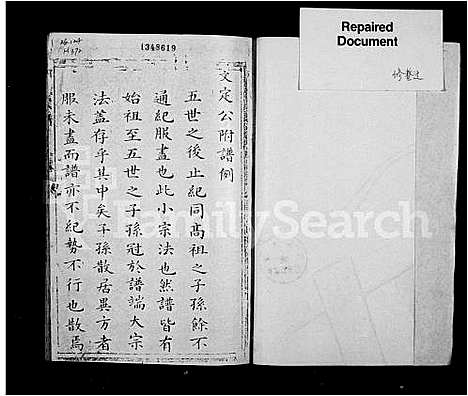 Repaired
Document
修整过
1348619
文定公附譜例
五世之後止紀同髙祖之子孫餘不
通紀服盡也此小宗法也然譜皆有
始祖至五世之子孫冠於譜端大宗
法蓋存乎其中矣子孫散居異方者
服未盡而譜亦不紀勢不行也散焉
FamilySearch